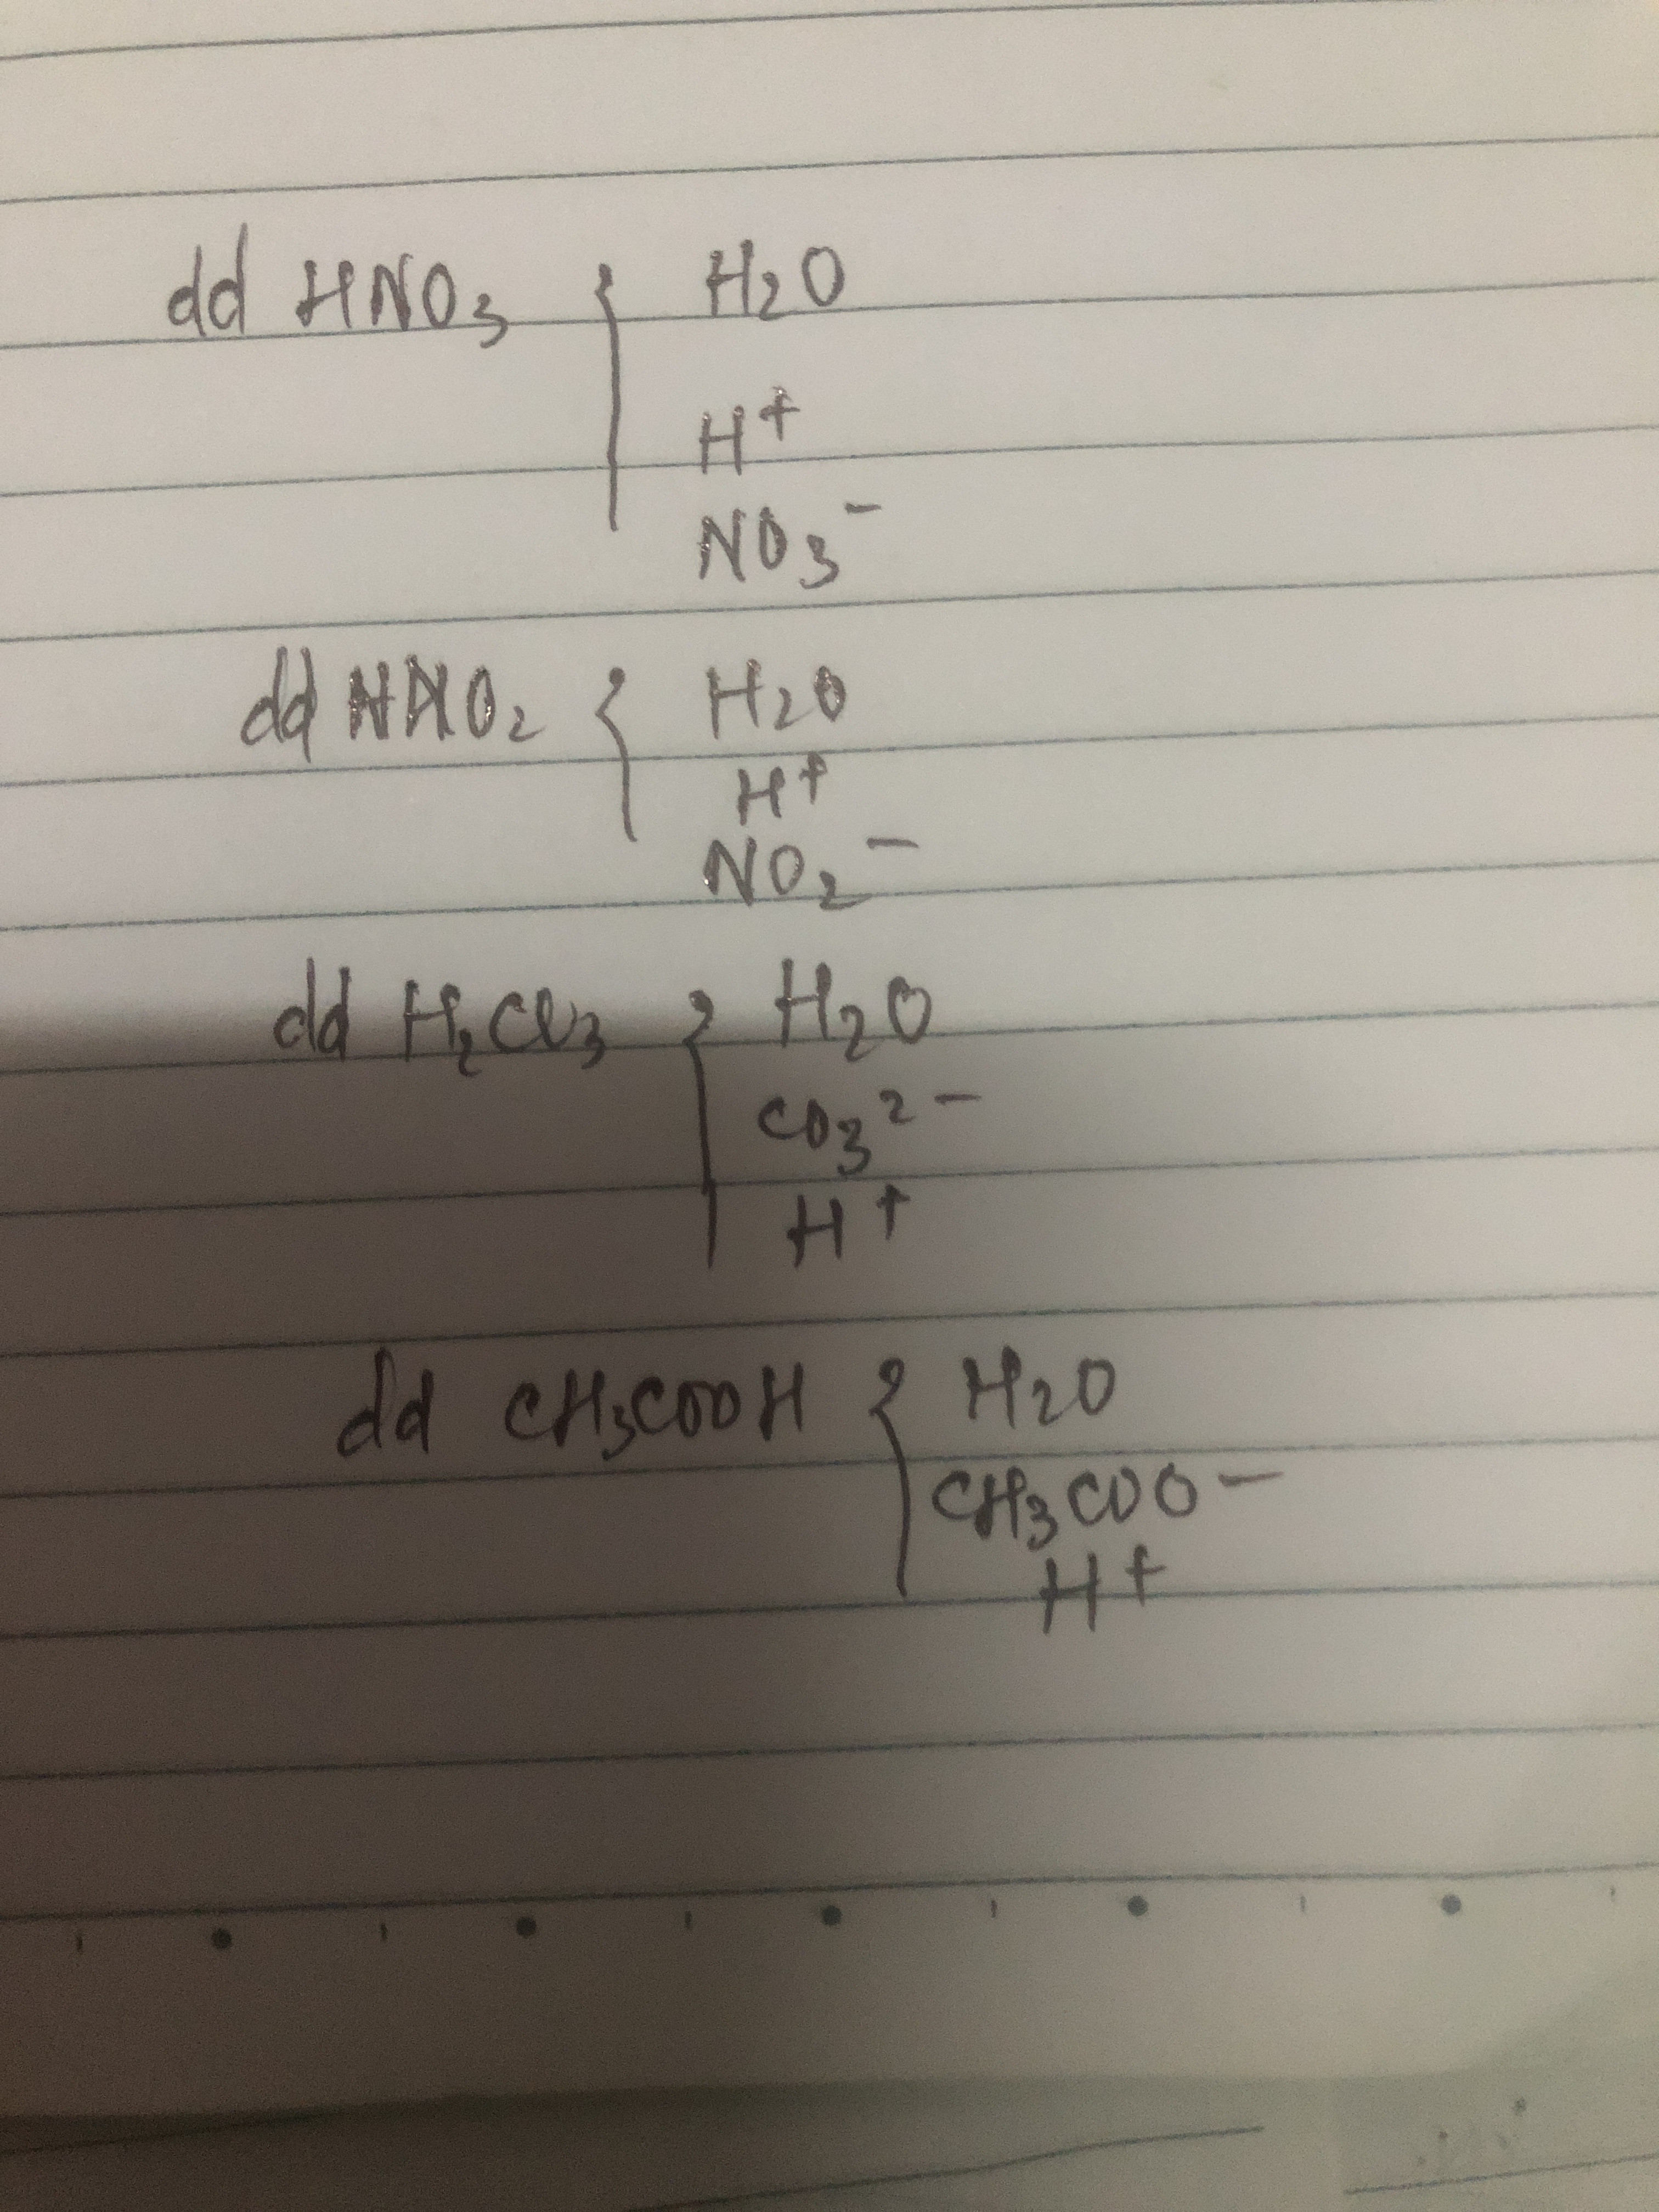 dd HNO₃ { H₂O
H⁺
NO₃⁻
dd HNO₂ { H₂O
H⁺
NO₂⁻
dd H₂CO₃ { H₂O
CO₃²⁻
H⁺
dd CH₃COOH { H₂O
CH₃COO⁻
H⁺